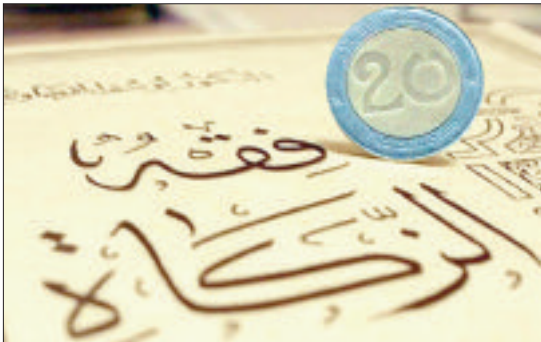 20
فقه
الزكاة